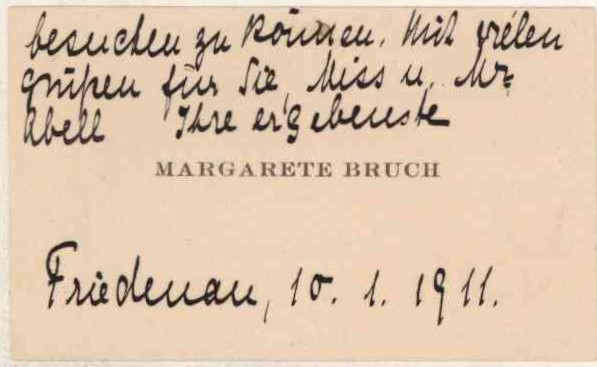 besuchen zu können. Mit vielen
Grüßen für Sie, Miss u. Mr.
Abell Ihre ergebenste
MARGARETE BRUCH
Friedenau, 10. 1. 1911.